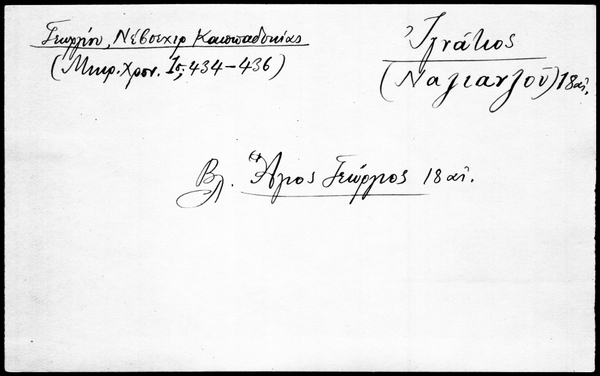 Γεωργίου, Νέβσεχιρ Καππαδοκίας
(Μικρ. Χρον. Ις, 434-436)
Ἰγνάτιος
(Ναζιανζοῦ) 18 αἰ.
Βλ. Ἅγιος Γεώργιος 18 αἰ.